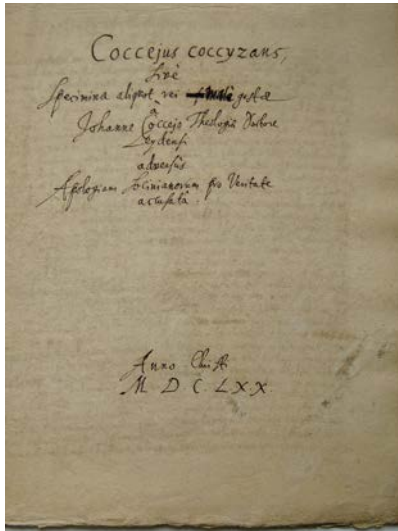 Coccejus coccyzans,
Sive
Specimina aliquot rei malè gestæ
à
Johanne Coccejo Theologiæ Doctore
Leydensi
adversùs
Apologiam Socinianorum pro Veritate
accusatâ.
Anno Christi
M D C LXX.